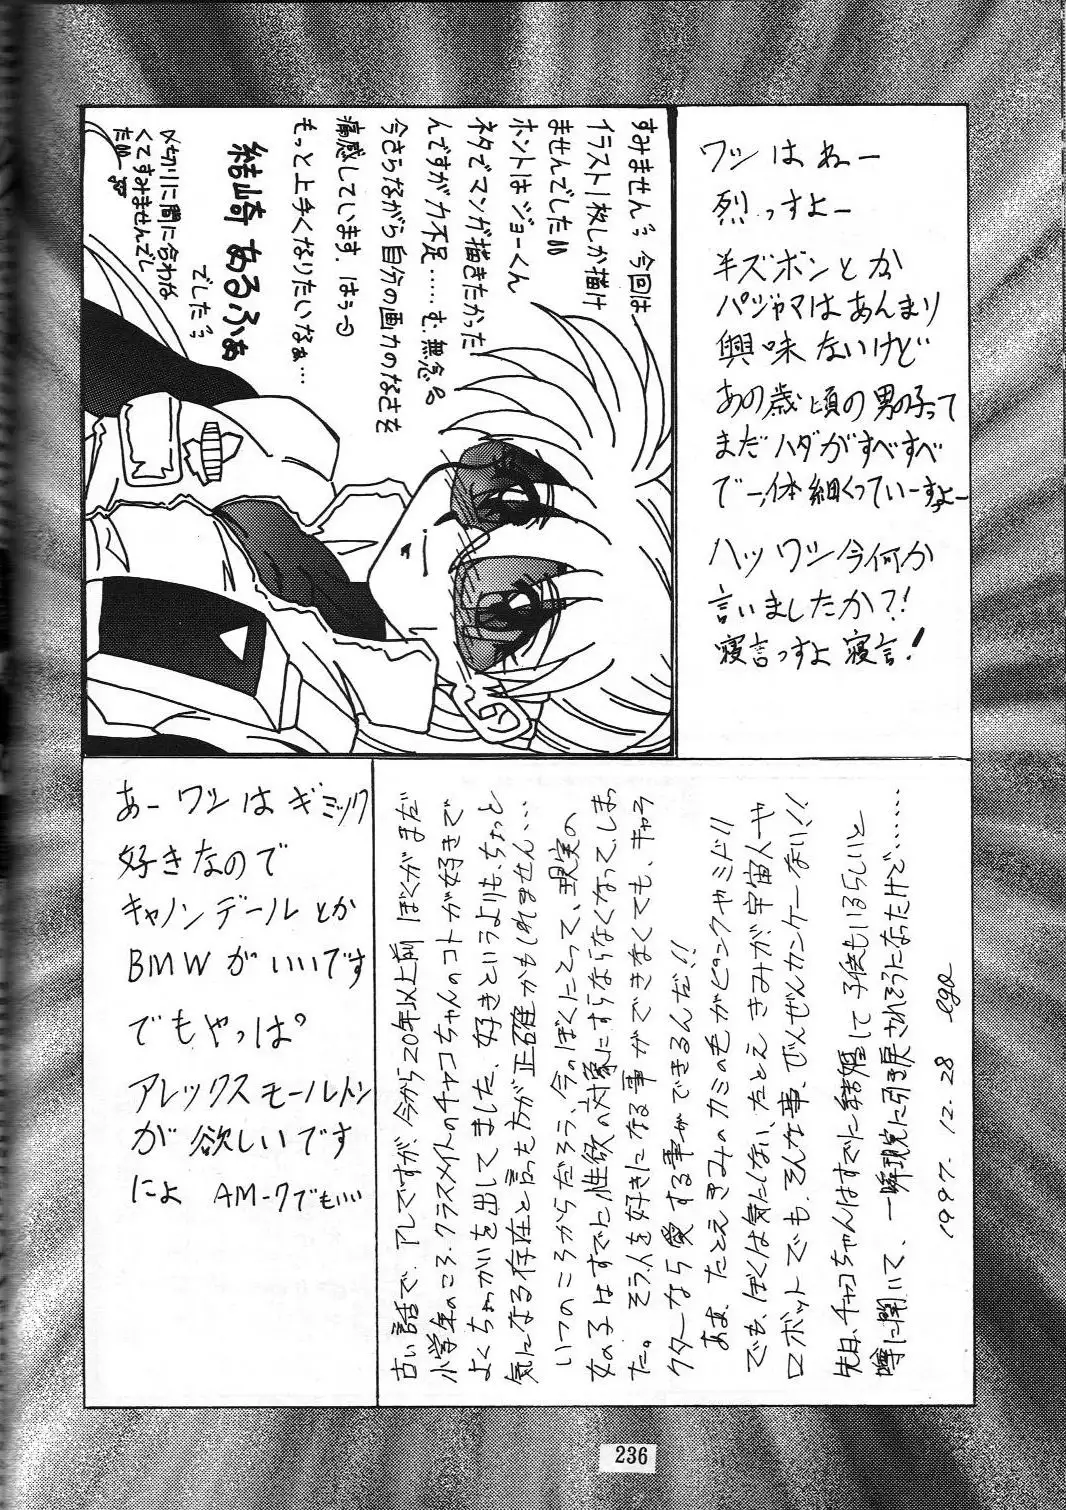 ワシはねー
烈っすよー
半ズボンとか
パジャマはあんまり
興味ないけど
あの歳頃の男の子って
まだハダがすべすべ
でー、体細くっていーすよー
ハッ ワシ今何か
言いましたか?!
寝言っすよ 寝言!
すみませんう 今回は
イラスト1枚しか描け
ませんでした
ホントはジョーくん
ネタでマンガ描きたかった
んですが力不足……む、無念
今さらながら自分の画力のなさを
痛感しています。はうっ
もっと上手くなりたいなぁ…
結崎 あるふぁ
でしたう
〆切りに間に合わな
くてすみませんでし
たぁぁー
あー ワシは ギミック
好きなので
キャノンデールとか
BMWがいいです
でもやっぱ。
アレックスモールトン
が欲しいです
によ AM-7でもいい
古い話で、アレですが、今から20年以上前 ぼくがまだ
小学生のころ、クラスメイトのチャコちゃんのコトが好きで
よくちょっかいを出してました、好きというよりも、ちょっと
気になる存在と言った方が正確かもしれません…
いつのころからだろう、今のぼくにとって、現実の
女の子はすでに性欲の対象にすらならなくなって、しまっ
た。そう人を好きになる事ができなくても、キャラ
クターなら愛する事ができるんだ!!
ああ、たとえきみのカミの毛がピンクやミドリ
でも、ぼくは気にしない、たとえきみが、宇宙人や
ロボットでも、そんな事、ぜんぜんカンケーない!!
先日、チャコちゃんはすでに結婚して子供もいるらしいと
噂に聞いて、一瞬現実に引き戻されそうになったけど……
1997.12.28 ego
236